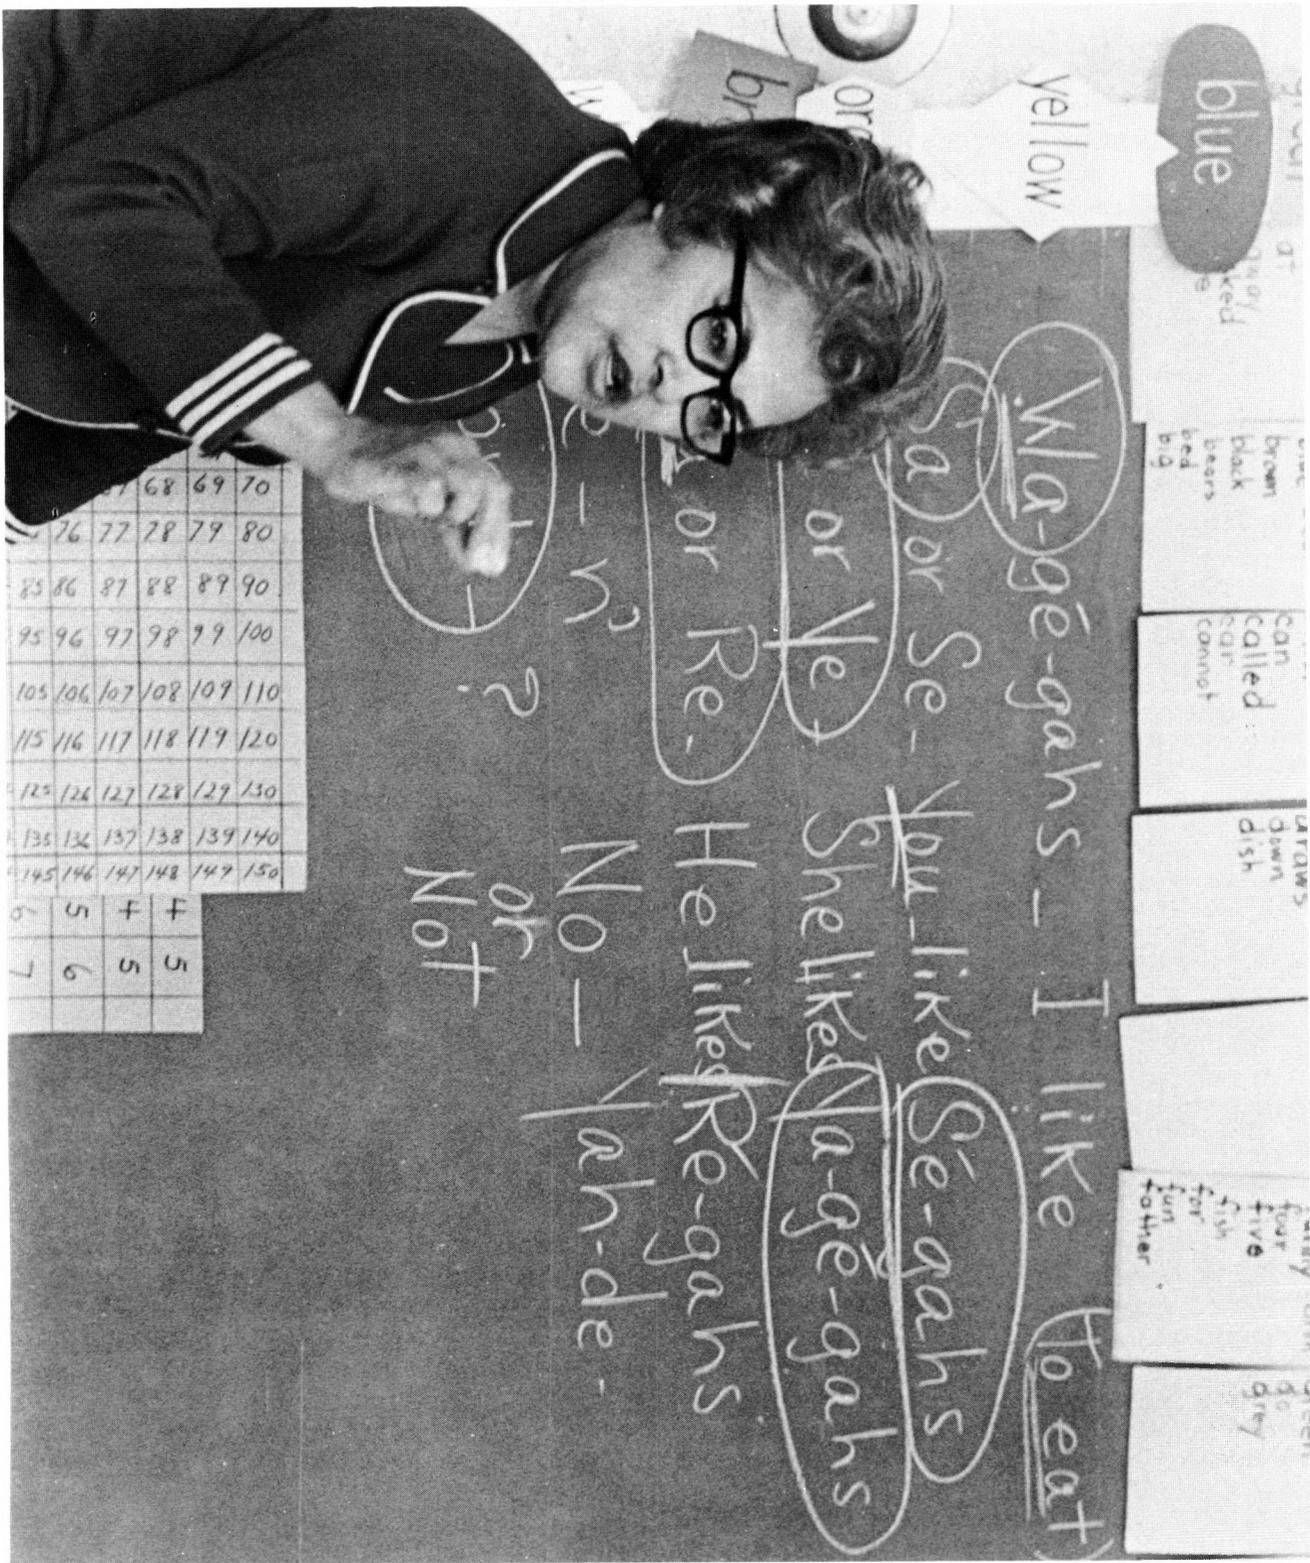 blue
yellow
brown
black
bears
bed
big
can
called
car
cannot
draws
down
dish
funny
four
five
fish
for
fun
father
green
go
grey
Wa-gé-gahs - I like (to eat)
Sa or Se- You like Sé-gahs
or Ye- She likes Ya-gé-gahs
or Re- He likes Re-gahs
- n? No - Yah-de-
? or
Not
68 69 70
76 77 78 79 80
85 86 87 88 89 90
95 96 97 98 99 100
105 106 107 108 109 110
115 116 117 118 119 120
125 126 127 128 129 130
135 136 137 138 139 140
145 146 147 148 149 150
4 5
4 5
5 6
6 7